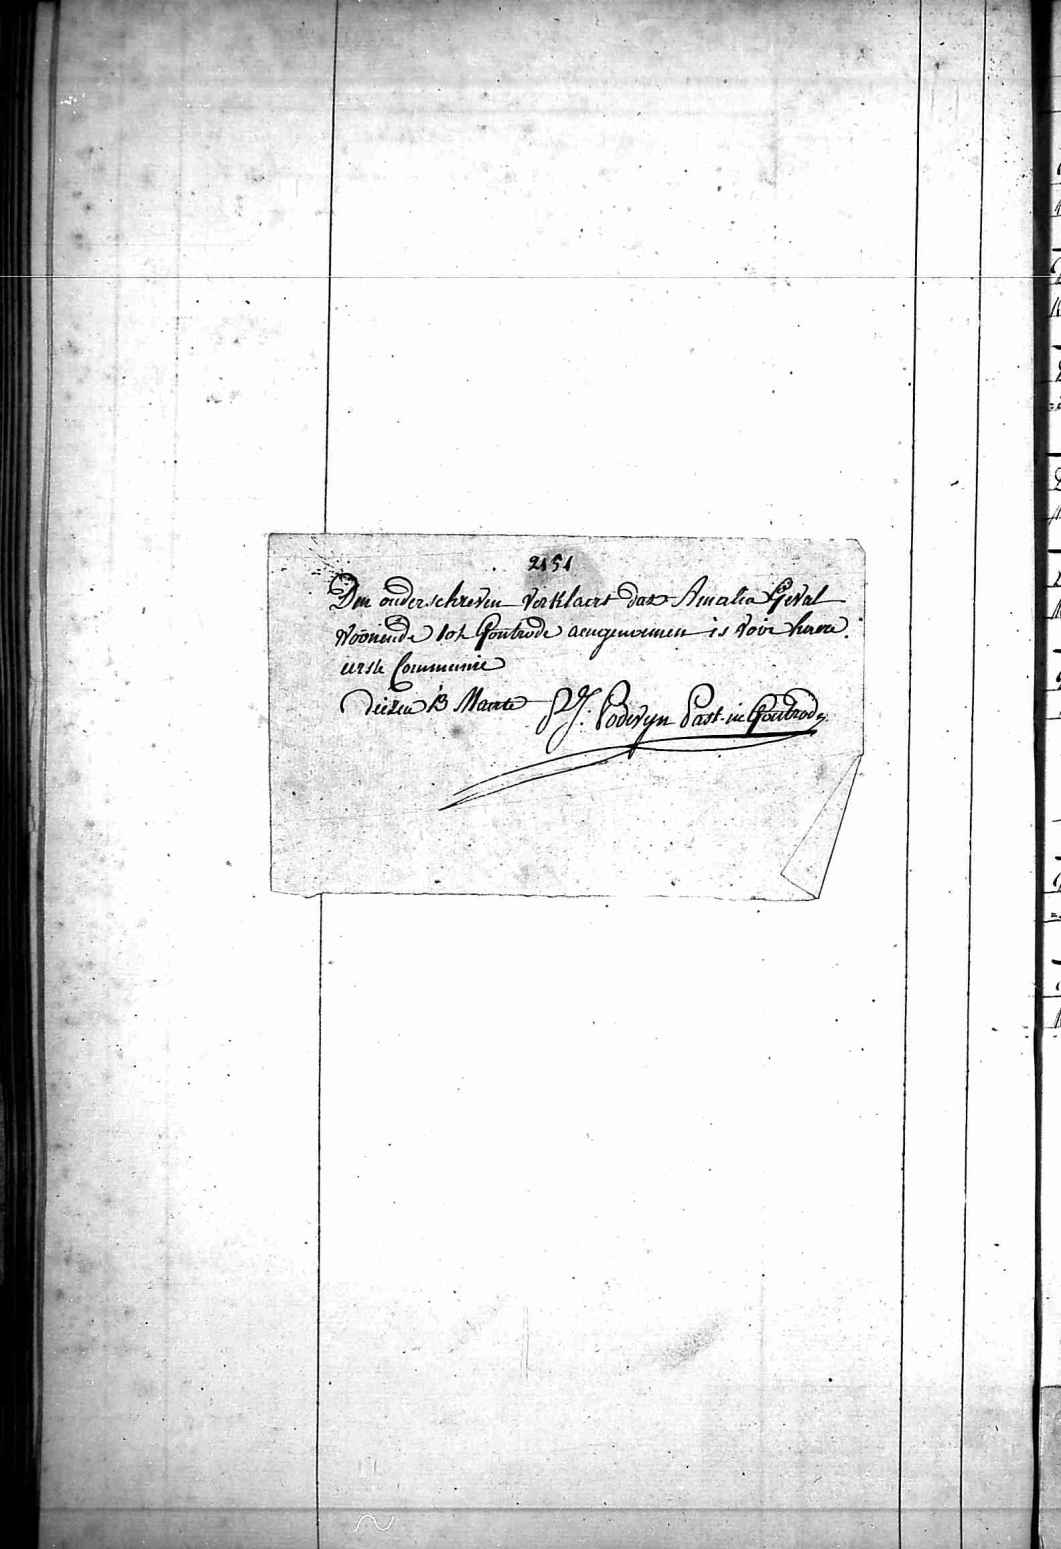 2151
Den onderschreven verklaert dat Amalia Geval
woonende tot Gontrode aengenomen is voor haere
eerste Communie
dezen 13 Maerte P. J. Podevyn Past. in Gontrode